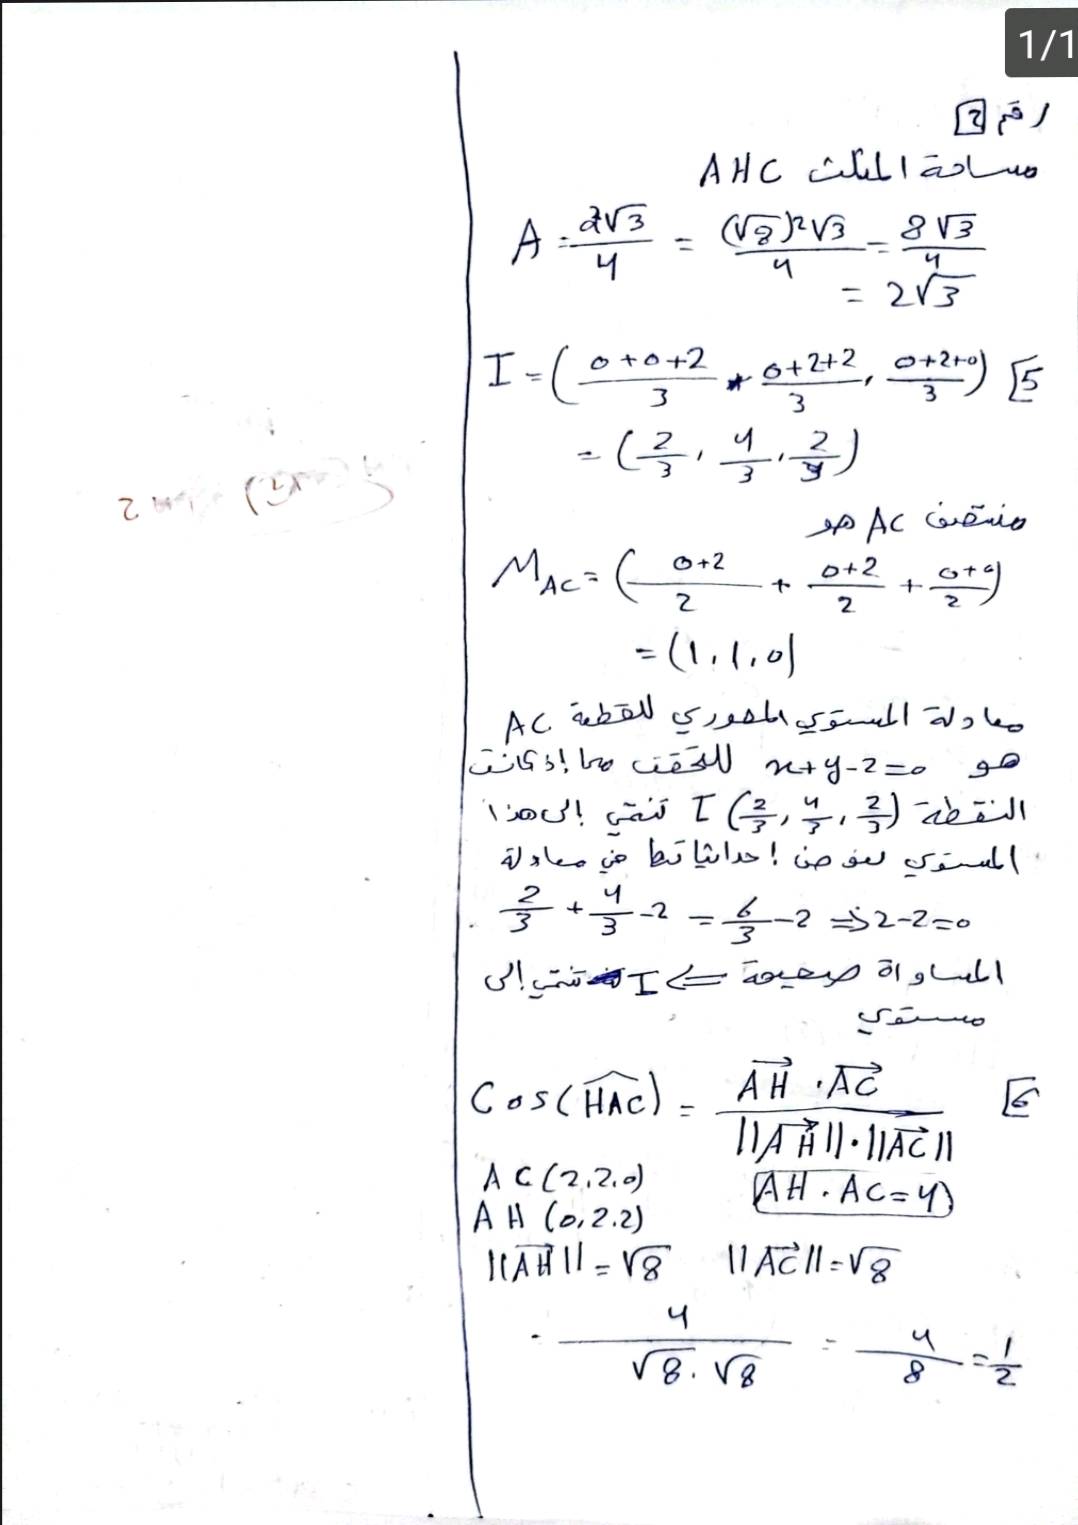 1/1
رقم 2
مساحة المثلث AHC
A = 2√3/4 = (√8)²√3/4 = 8√3/4
= 2√3
5 I = (0+0+2/3 , 0+2+2/3 , 0+2+0/3)
= (2/3 , 4/3 , 2/3)
منتصف AC هو
M_AC = (0+2/2 + 0+2/2 + 0+0/2)
= (1, 1, 0)
معادلة المستوي المحوري للقطعة AC
هو x+y-2=0 للتحقق مما إذ كانت
النقطة I (2/3, 4/3, 2/3) تنتمي إلى هذا
المستوي نعوض إحداثياتها في معادلة
2/3 + 4/3 - 2 = 6/3 - 2 ⇒ 2-2=0
المساواة صحيحة ⇐ I تنتمي إلى
مستوي
6 Cos(HAC) = AH · AC / ||AH|| · ||AC||
AC (2, 2, 0) AH · AC = 4
AH (0, 2, 2)
||AH|| = √8 ||AC|| = √8
4/√8 · √8 = 4/8 = 1/2